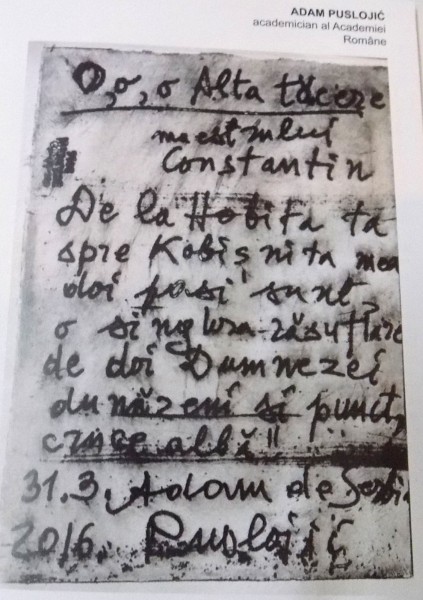 ADAM PUSLOJIĆ
academician al Academiei
Române
O, o, o Alta tăcere
maestrului
Constantin
De la Hobita ta
spre Kobișnita mea
doi pasi sunt,
o singura răsuflare
de doi Dumnezei
dunăzeni si punct,
cruce albă"
31.3. Adam de Serbia
2016. Puslojić